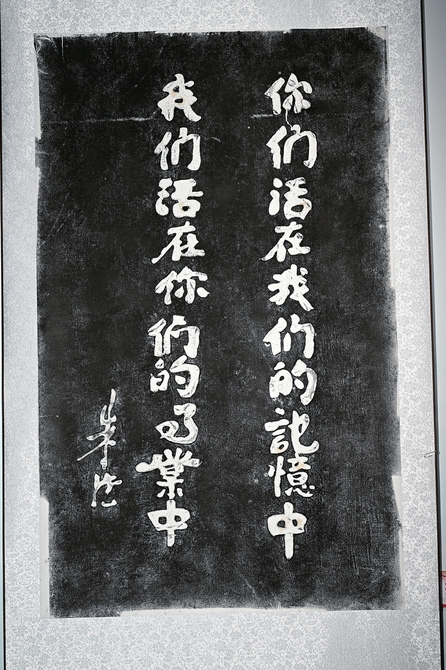 你们活在我们的記憶中
我们活在你们的事業中
朱德